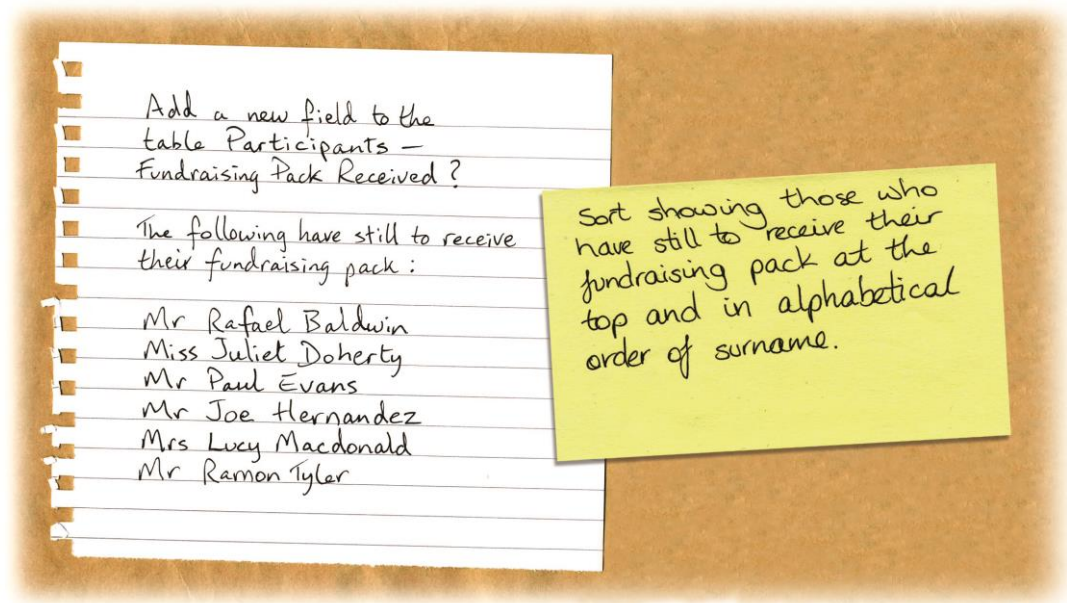 Add a new field to the
table Participants –
Fundraising Pack Received ?
The following have still to receive
their fundraising pack :
Mr Rafael Baldwin
Miss Juliet Doherty
Mr Paul Evans
Mr Joe Hernandez
Mrs Lucy Macdonald
Mr Ramon Tyler
Sort showing those who
have still to receive their
fundraising pack at the
top and in alphabetical
order of surname.